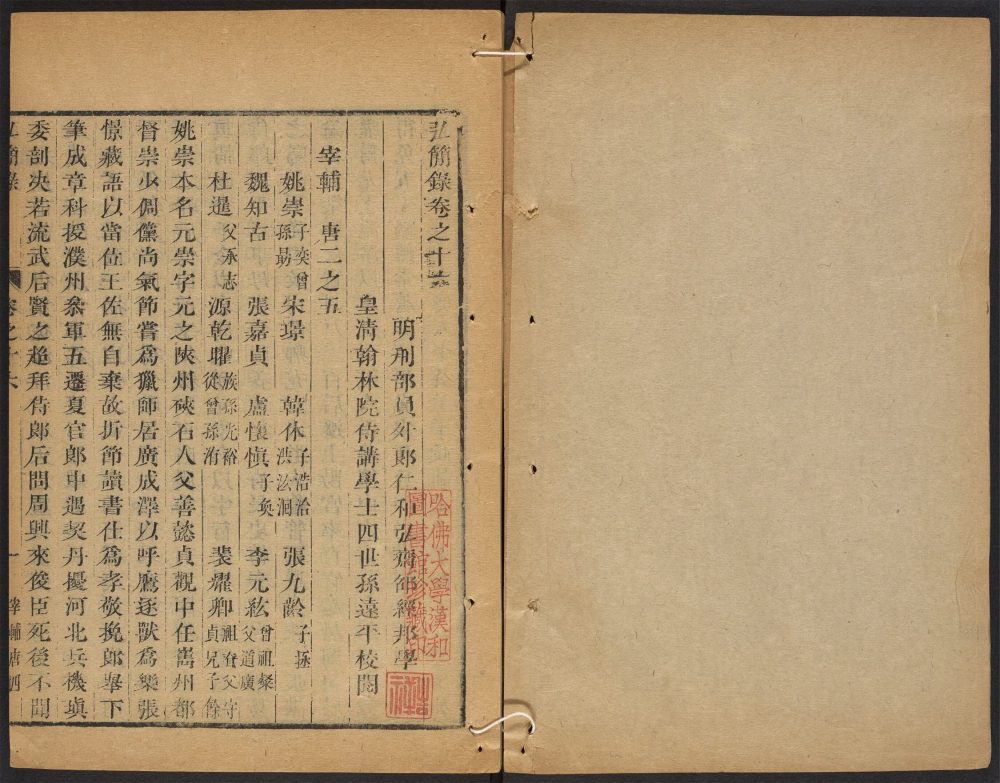 弘簡錄卷之十六
明刑部員外郎仁和弘齋邵經邦學
皇清翰林院侍講學士四世孫遠平校閱
宰輔 唐二之五
姚崇 子奕曾 孫勗 宋璟 韓休 子浩洽 洪汯滉 張九齡 子拯
魏知古 張嘉貞 盧懷慎 子奐 李元紘 曾祖粲 父道廣
杜暹 父承志 源乾曜 族孫光裕 從曾孫洧 裴耀卿 祖 父守 貞兄子餘
姚崇本名元崇字元之陝州硤石人父善懿貞觀中任巂州都
督崇少倜儻尚氣節嘗爲獵師居廣成澤以呼鷹逐獸爲樂張
憬藏語以當位王佐無自棄故折節讀書仕爲孝敬挽郎舉下
筆成章科授濮州叅軍五遷夏官郎中遇契丹擾河北兵機塡
委剖决若流武后賢之超拜侍郎后問周興來俊臣死後不聞
弘簡錄 卷之十六 一 宰輔唐四
哈佛大學漢和
圖書館珍藏印